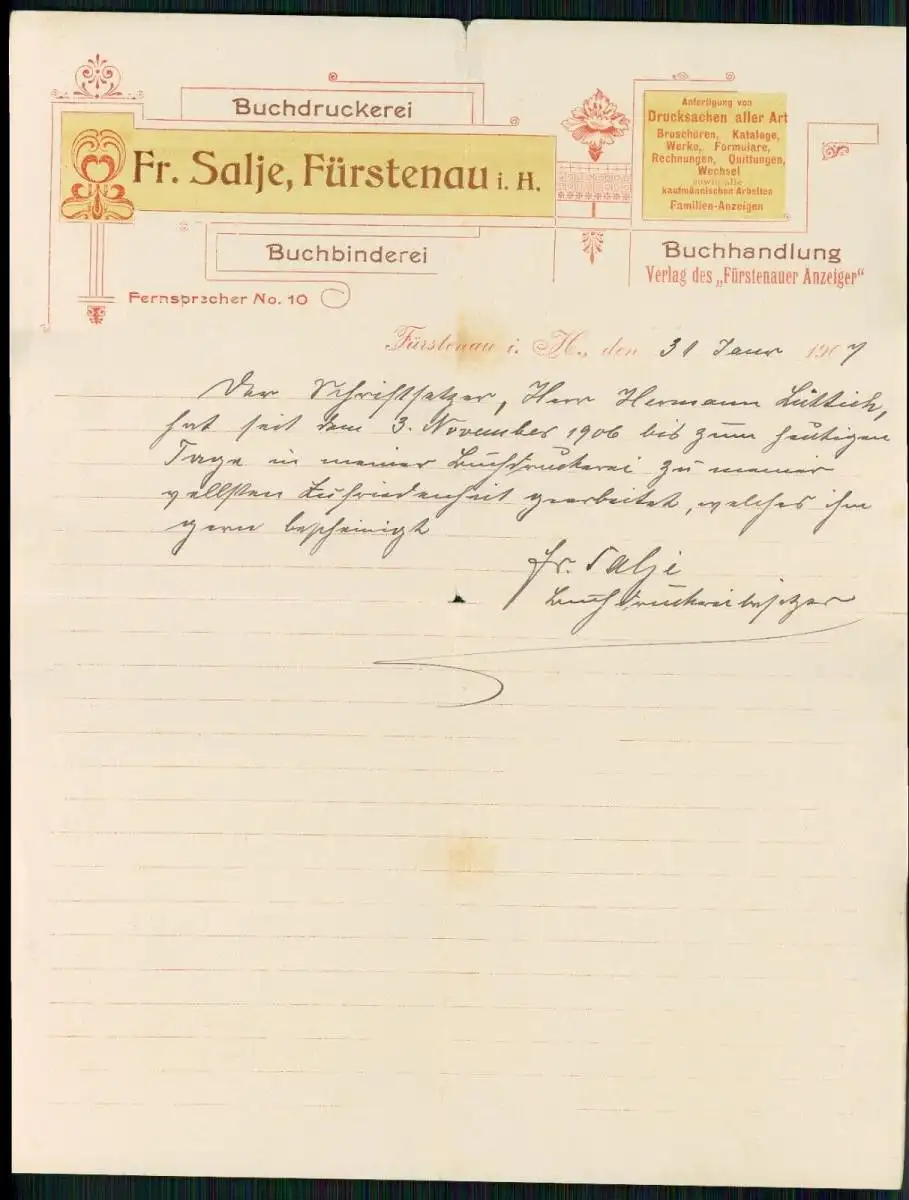 Buchdruckerei
Fr. Salje, Fürstenau i. H.
Buchbinderei
Fernsprecher No. 10
Anfertigung von
Drucksachen aller Art
Broschüren, Kataloge,
Werke, Formulare,
Rechnungen, Quittungen,
Wechsel
sowie alle
kaufmännischen Arbeiten
Familien-Anzeigen
Buchhandlung
Verlag des „Fürstenauer Anzeiger"
Fürstenau i. H., den 31 Janr 1907
Der Schriftsetzer, Herr Hermann Lüttich,
hat seit dem 3. November 1906 bis zum heutigen
Tage in meiner Buchdruckerei zu meiner
vollsten Zufriedenheit gearbeitet, welches ihm
gern bescheinigt
Fr. Salje
Buchdruckereibesitzer